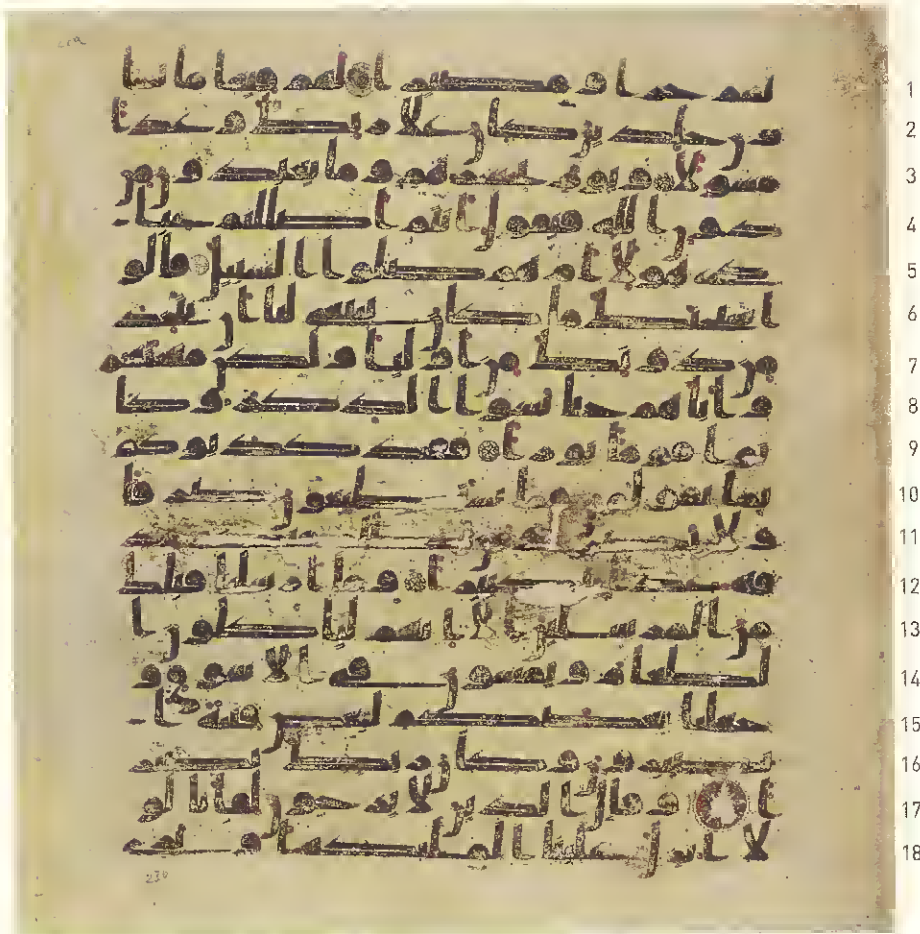 لهم جزا و مصيرا لهم فيها ما يشا
ون خلدين كان على ربك وعدا
مسولا ويوم يحشرهم وما يعبدون من د
ون الله فيقول ا انتم اضللتم عبا
دى هولا ام هم ضلوا السبيل قالو
ا سبحنك ما كان ينبغى لنا ان نتخذ
من دونك من اوليا ولكن متعتهم
و اباهم حتى نسوا الذكر وكا
نوا قوما بورا فقد كذبوكم
بما تقولون فما يستطيعون صرفا
ولا نصرا ومن يظلم منكم نذ
قه عذابا كبيرا وما ارسلنا قبلك
من المرسلين الا انهم لياكلون ا
لطعام ويمشون فى الاسوق و
جعلنا بعضكم لبعض فتنة ا
تصبرون وكان ربك بصير
ا وقال الذين لا يرجون لقانا لو
لا انزل علينا الملئكة او نرى
1
2
3
4
5
6
7
8
9
10
11
12
13
14
15
16
17
18